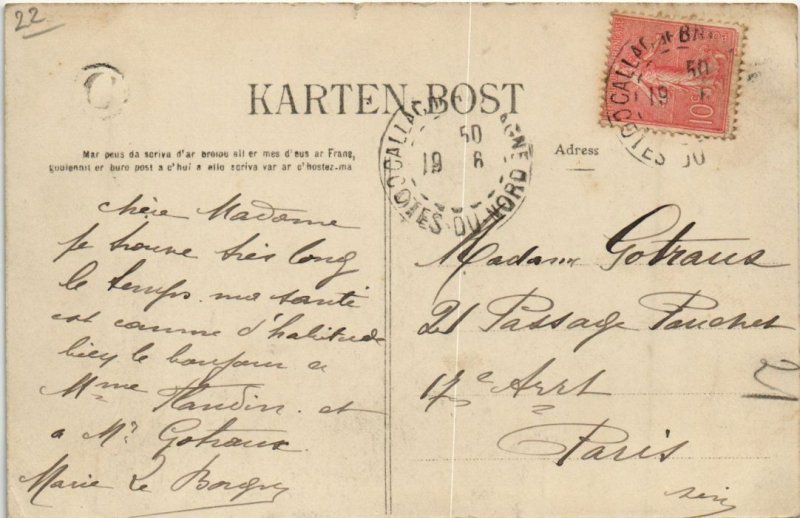 22
KARTEN-POST
Mar peus da scriva d'ar broiou all er mes d'eus ar Frans,
goulennit er buro post a c'hui a ello scriva var ar c'hostez-ma
Adress
CALLAC
BRETAGNE
50
19 6
COTES-DU-NORD
10
CALLAC
50
19 6
COTES DU
chère Madame
je trouve très long
le temps. ma santé
est comme d'habitude
bien le bonjour a
Mme Flaudin et
a Mr Gotraux
Marie Le Borgne
Madame Gotraux
21 Passage Pouchet
17e Arrt
Paris
21